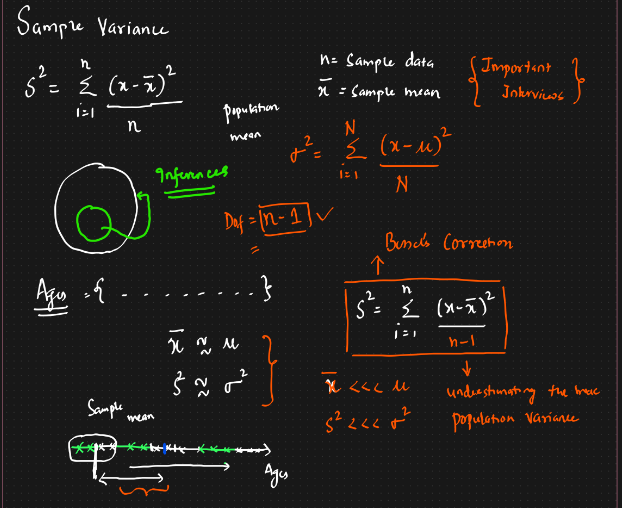 Sample Variance
S² = n Σ i=1 (x - x̄)² / n
n = Sample data
x̄ = Sample mean
{ Important Interviews }
population mean
σ² = N Σ i=1 (x - μ)² / N
Inferences
Dof = n-1 ✓
=
Ages = { . . . . . . . . . . }
x̄ ≈ μ
S² ≈ σ²
Correction
S² = n Σ i=1 (x - x̄)² / n-1
x̄ <<< μ
S² <<< σ²
underestimating the true
population variance
Sample mean
Ages